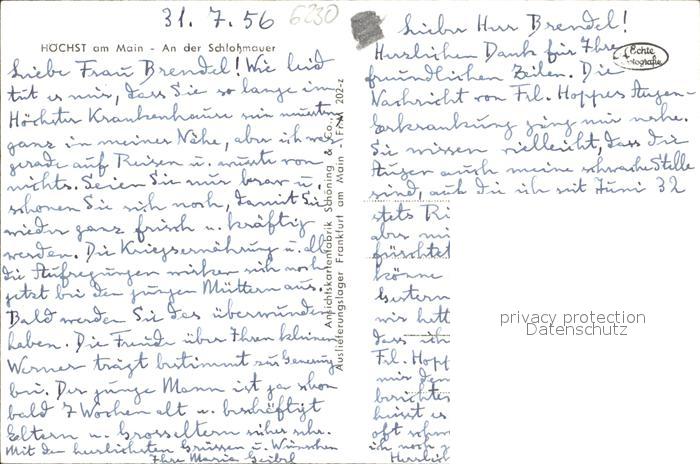 31. 7. 56
6230
HÖCHST am Main - An der Schloßmauer
Liebe Frau Brendel! Wie leid
tut es mir, dass Sie so lange im
Höchster Krankenhause sein mussten
ganz in meiner Nähe, aber ich war
gerade auf Reisen u. wusste von
nichts. Seien Sie nur brav u.
schonen Sie sich noch, damit Sie
wieder ganz frisch u. kräftig
werden. Die Kriegsernährung u. all
die Aufregungen wirken sich noch
jetzt bei den jungen Müttern aus.
Bald werden Sie das überwunden
haben. Die Freude über Ihren kleinen
Werner trägt bestimmt zur Genesung
bei. Der junge Mann ist ja schon
bald 7 Wochen alt u. beschäftigt
Eltern u. Grosseltern sicher sehr.
Mit den herzlichsten Grüssen u. Wünschen
Ihre Maria
Ansichtskartenfabrik Schöning & Co.,
Auslieferungslager Frankfurt am Main - F/M 202-z
Echte
Fotografie
Lieber Herr Brendel!
Herzlichen Dank für Ihre
freundlichen Zeilen. Die
Nachricht von Frl. Hoppes Augen-
erkrankung ging mir nahe.
Sie wissen vielleicht, dass die
Augen auch meine schwache Stelle
sind, auf die ich seit Juni 32
stets
aber
fürchtet
könne
Gestern
wir
dass ich
Frl. Hopp
mir
berichtet
heisst es
oft
ich noch
Herzlich
privacy protection
Datenschutz